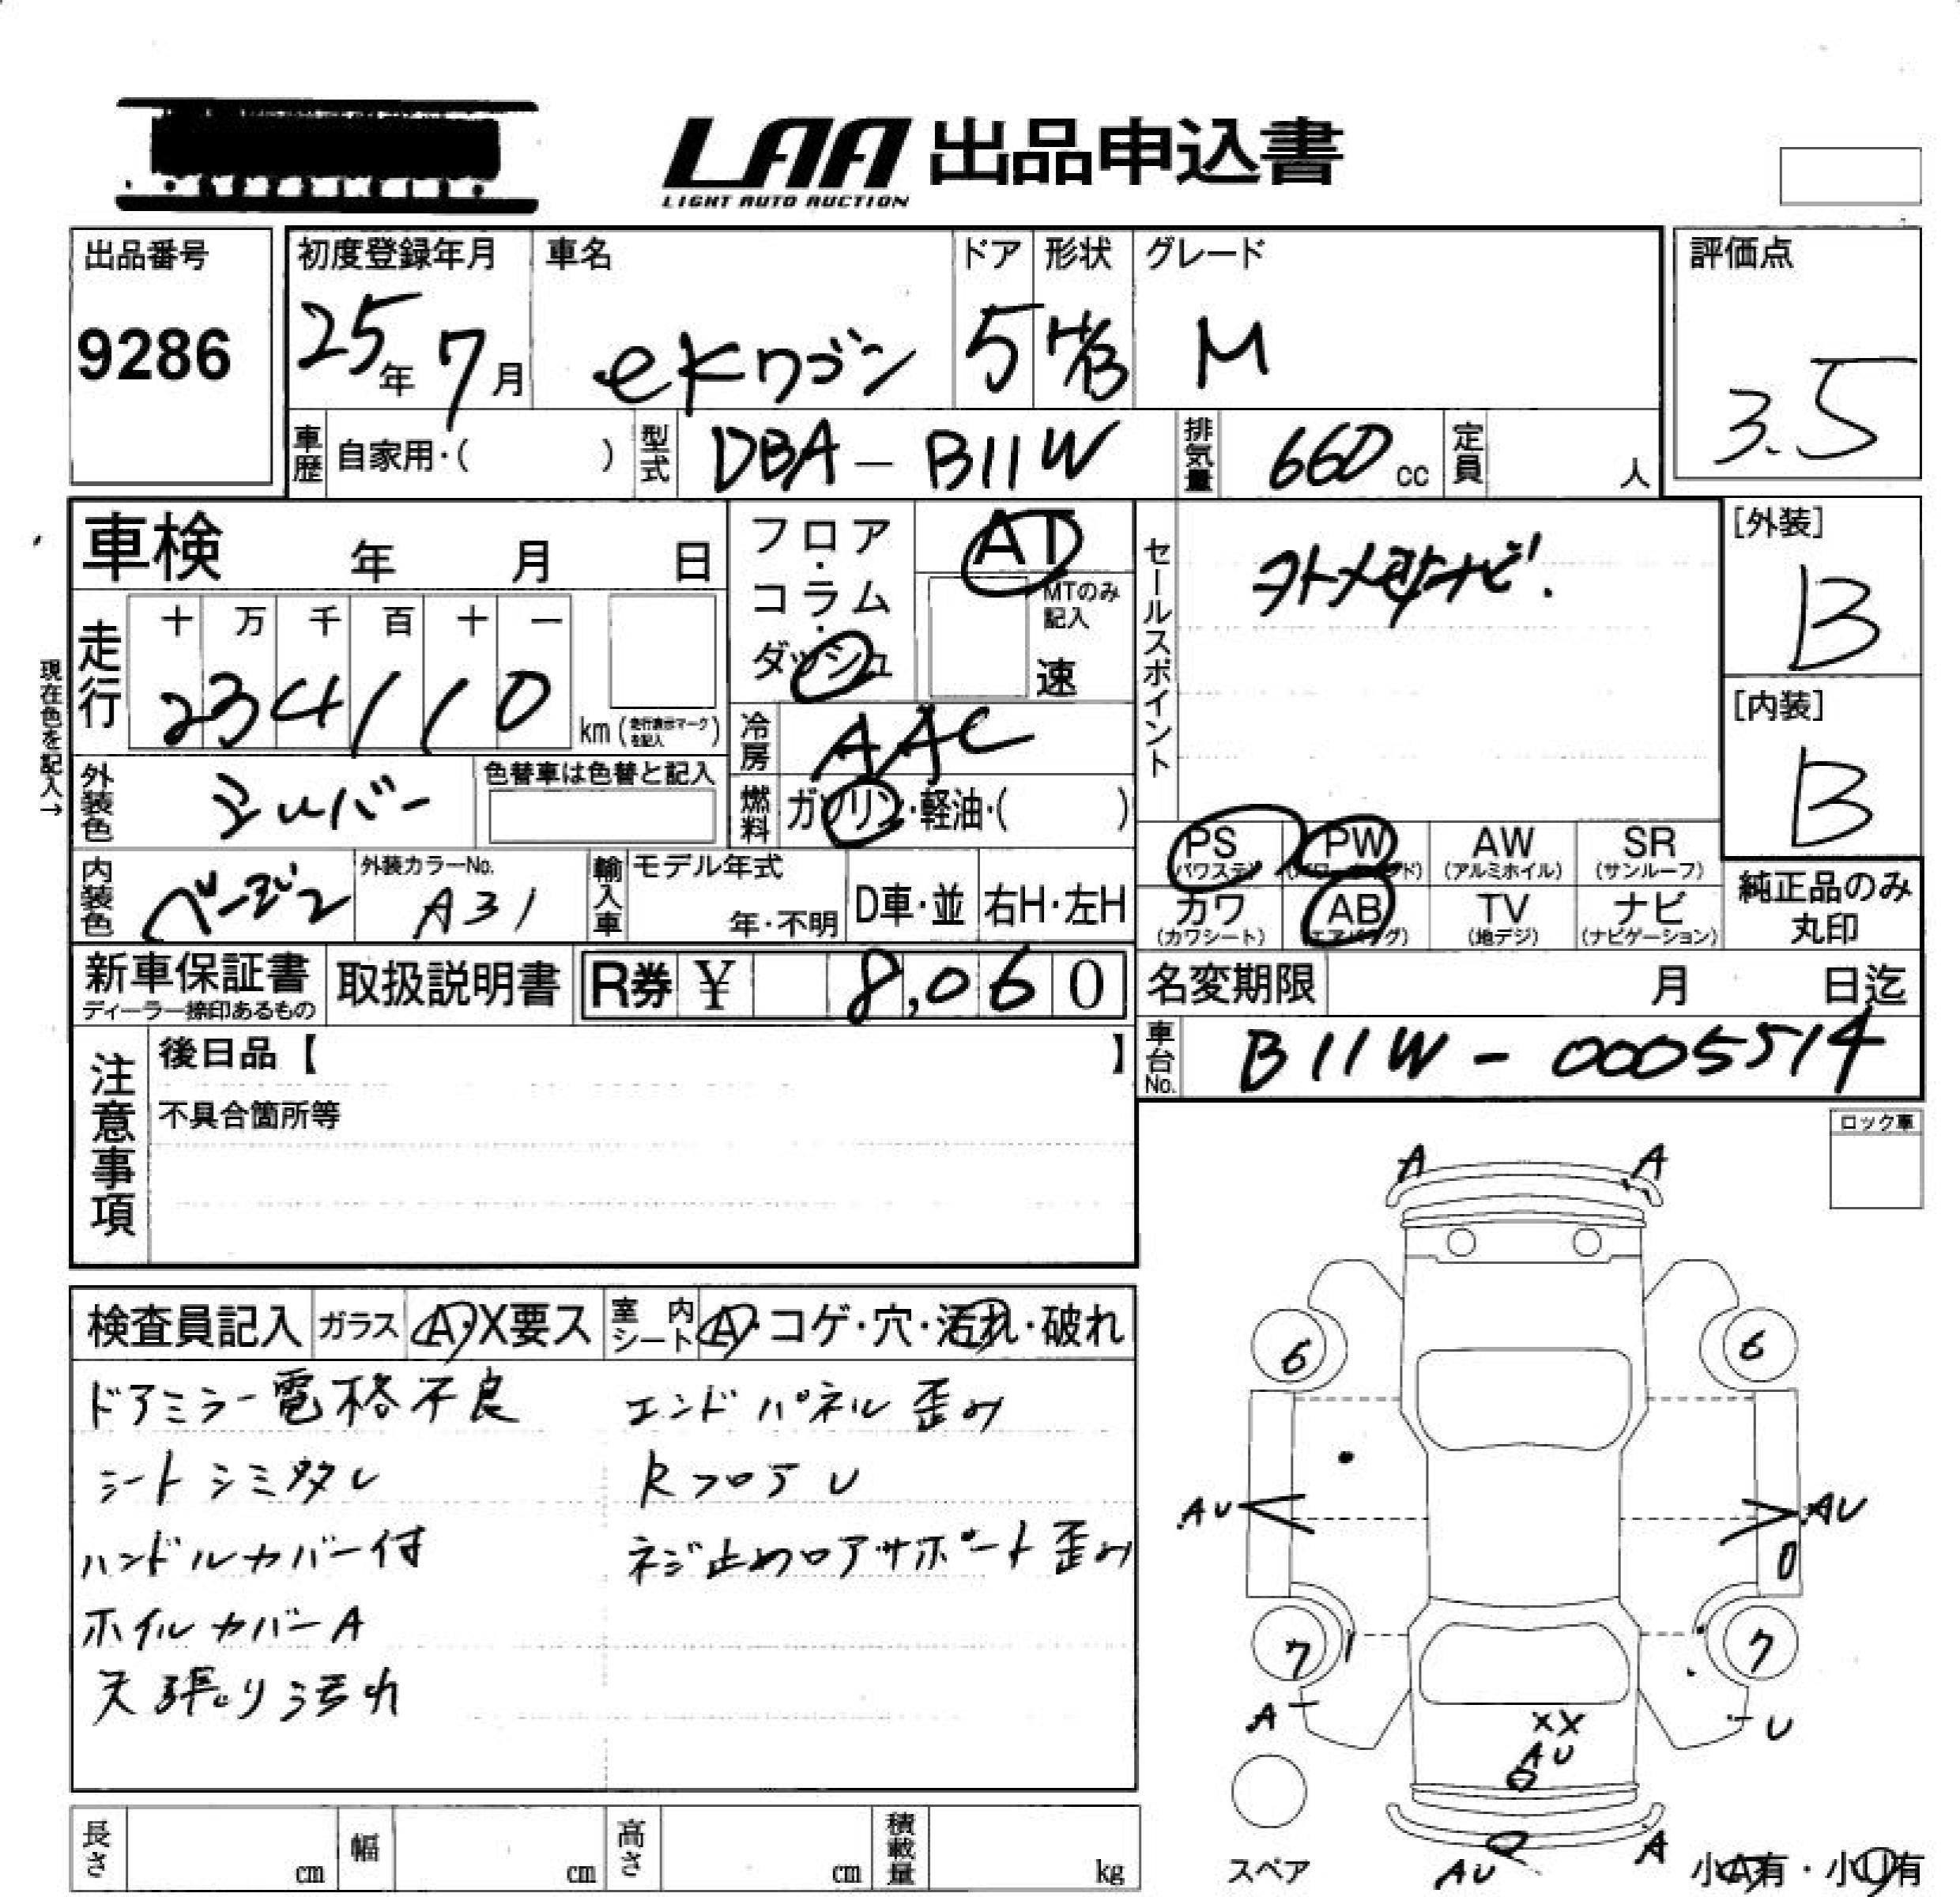 LAA 出品申込書
LIGHT AUTO AUCTION
出品番号
9286
初度登録年月
25年 7月
車名
eKワゴン
ドア
5
形状
H/B
グレード
M
評価点
3.5
車歴 自家用・( )
型式 DBA-B11W
排気量 660 cc
定員 人
車検 年 月 日
フロア・コラム・ダッシュ
AT
MTのみ記入
速
セールスポイント
[外装]
B
[内装]
B
現在色を記入→
走行
十 万 千 百 十 一
2 3 4 1 1 0
km (走行表示マークを記入)
冷房 AAC
外装色 シルバー
色替車は色替と記入
燃料 ガソリン・軽油・( )
PS (パワステ)
PW
AW (アルミホイル)
SR (サンルーフ)
カワ (カワシート)
AB (エアバック)
TV (地デジ)
ナビ (ナビゲーション)
純正品のみ丸印
内装色 ベージュ
外装カラーNo. A31
輸入車
モデル年式
年・不明
D車・並
右H・左H
新車保証書
ディーラー捺印あるもの
取扱説明書
R券 ¥ 8,060
名変期限 月 日迄
車台No. B11W-0005514
注意事項
後日品【 】
不具合箇所等
ロック車
検査員記入
ガラス A・X要ス
室内シート A・コゲ・穴・汚れ・破れ
ドアミラー電格不良
シートシミ多し
ハンドルカバー付
ホイルカバーA
天張り汚れ
エンドパネル歪み
RフロアU
ネジ止めロアサポート歪み
A A
6 6
AU AU
7 7
A U
XX
AU
AU A
スペア
小A有・小U有
長さ cm
幅 cm
高さ cm
積載量 kg